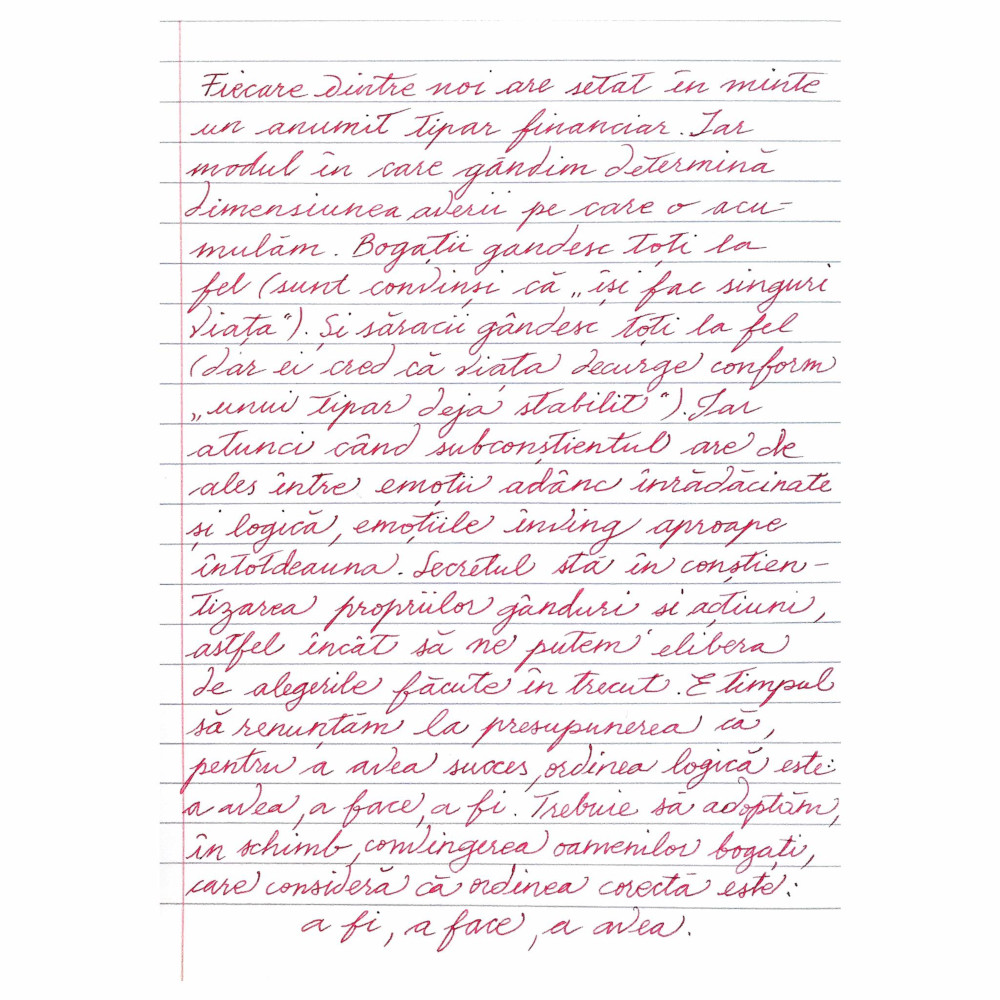 Fiecare dintre noi are setat în minte
un anumit tipar financiar. Iar
modul în care gândim determină
dimensiunea averii pe care o acu-
mulăm. Bogații gandesc toți la
fel (sunt convinși că „își fac singuri
viața"). Și săracii gândesc toți la fel
(dar ei cred că viața decurge conform
„unui tipar deja stabilit"). Iar
atunci când subconștientul are de
ales între emoții adânc înrădăcinate
și logică, emoțiile înving aproape
întotdeauna. Secretul stă în conștien-
tizarea propriilor gânduri si acțiuni,
astfel încât să ne putem elibera
de alegerile făcute în trecut. E timpul
să renunțăm la presupunerea că,
pentru a avea succes, ordinea logică este:
a avea, a face, a fi. Trebuie să adoptăm,
în schimb, convingerea oamenilor bogați,
care consideră că ordinea corectă este:
a fi, a face, a avea.